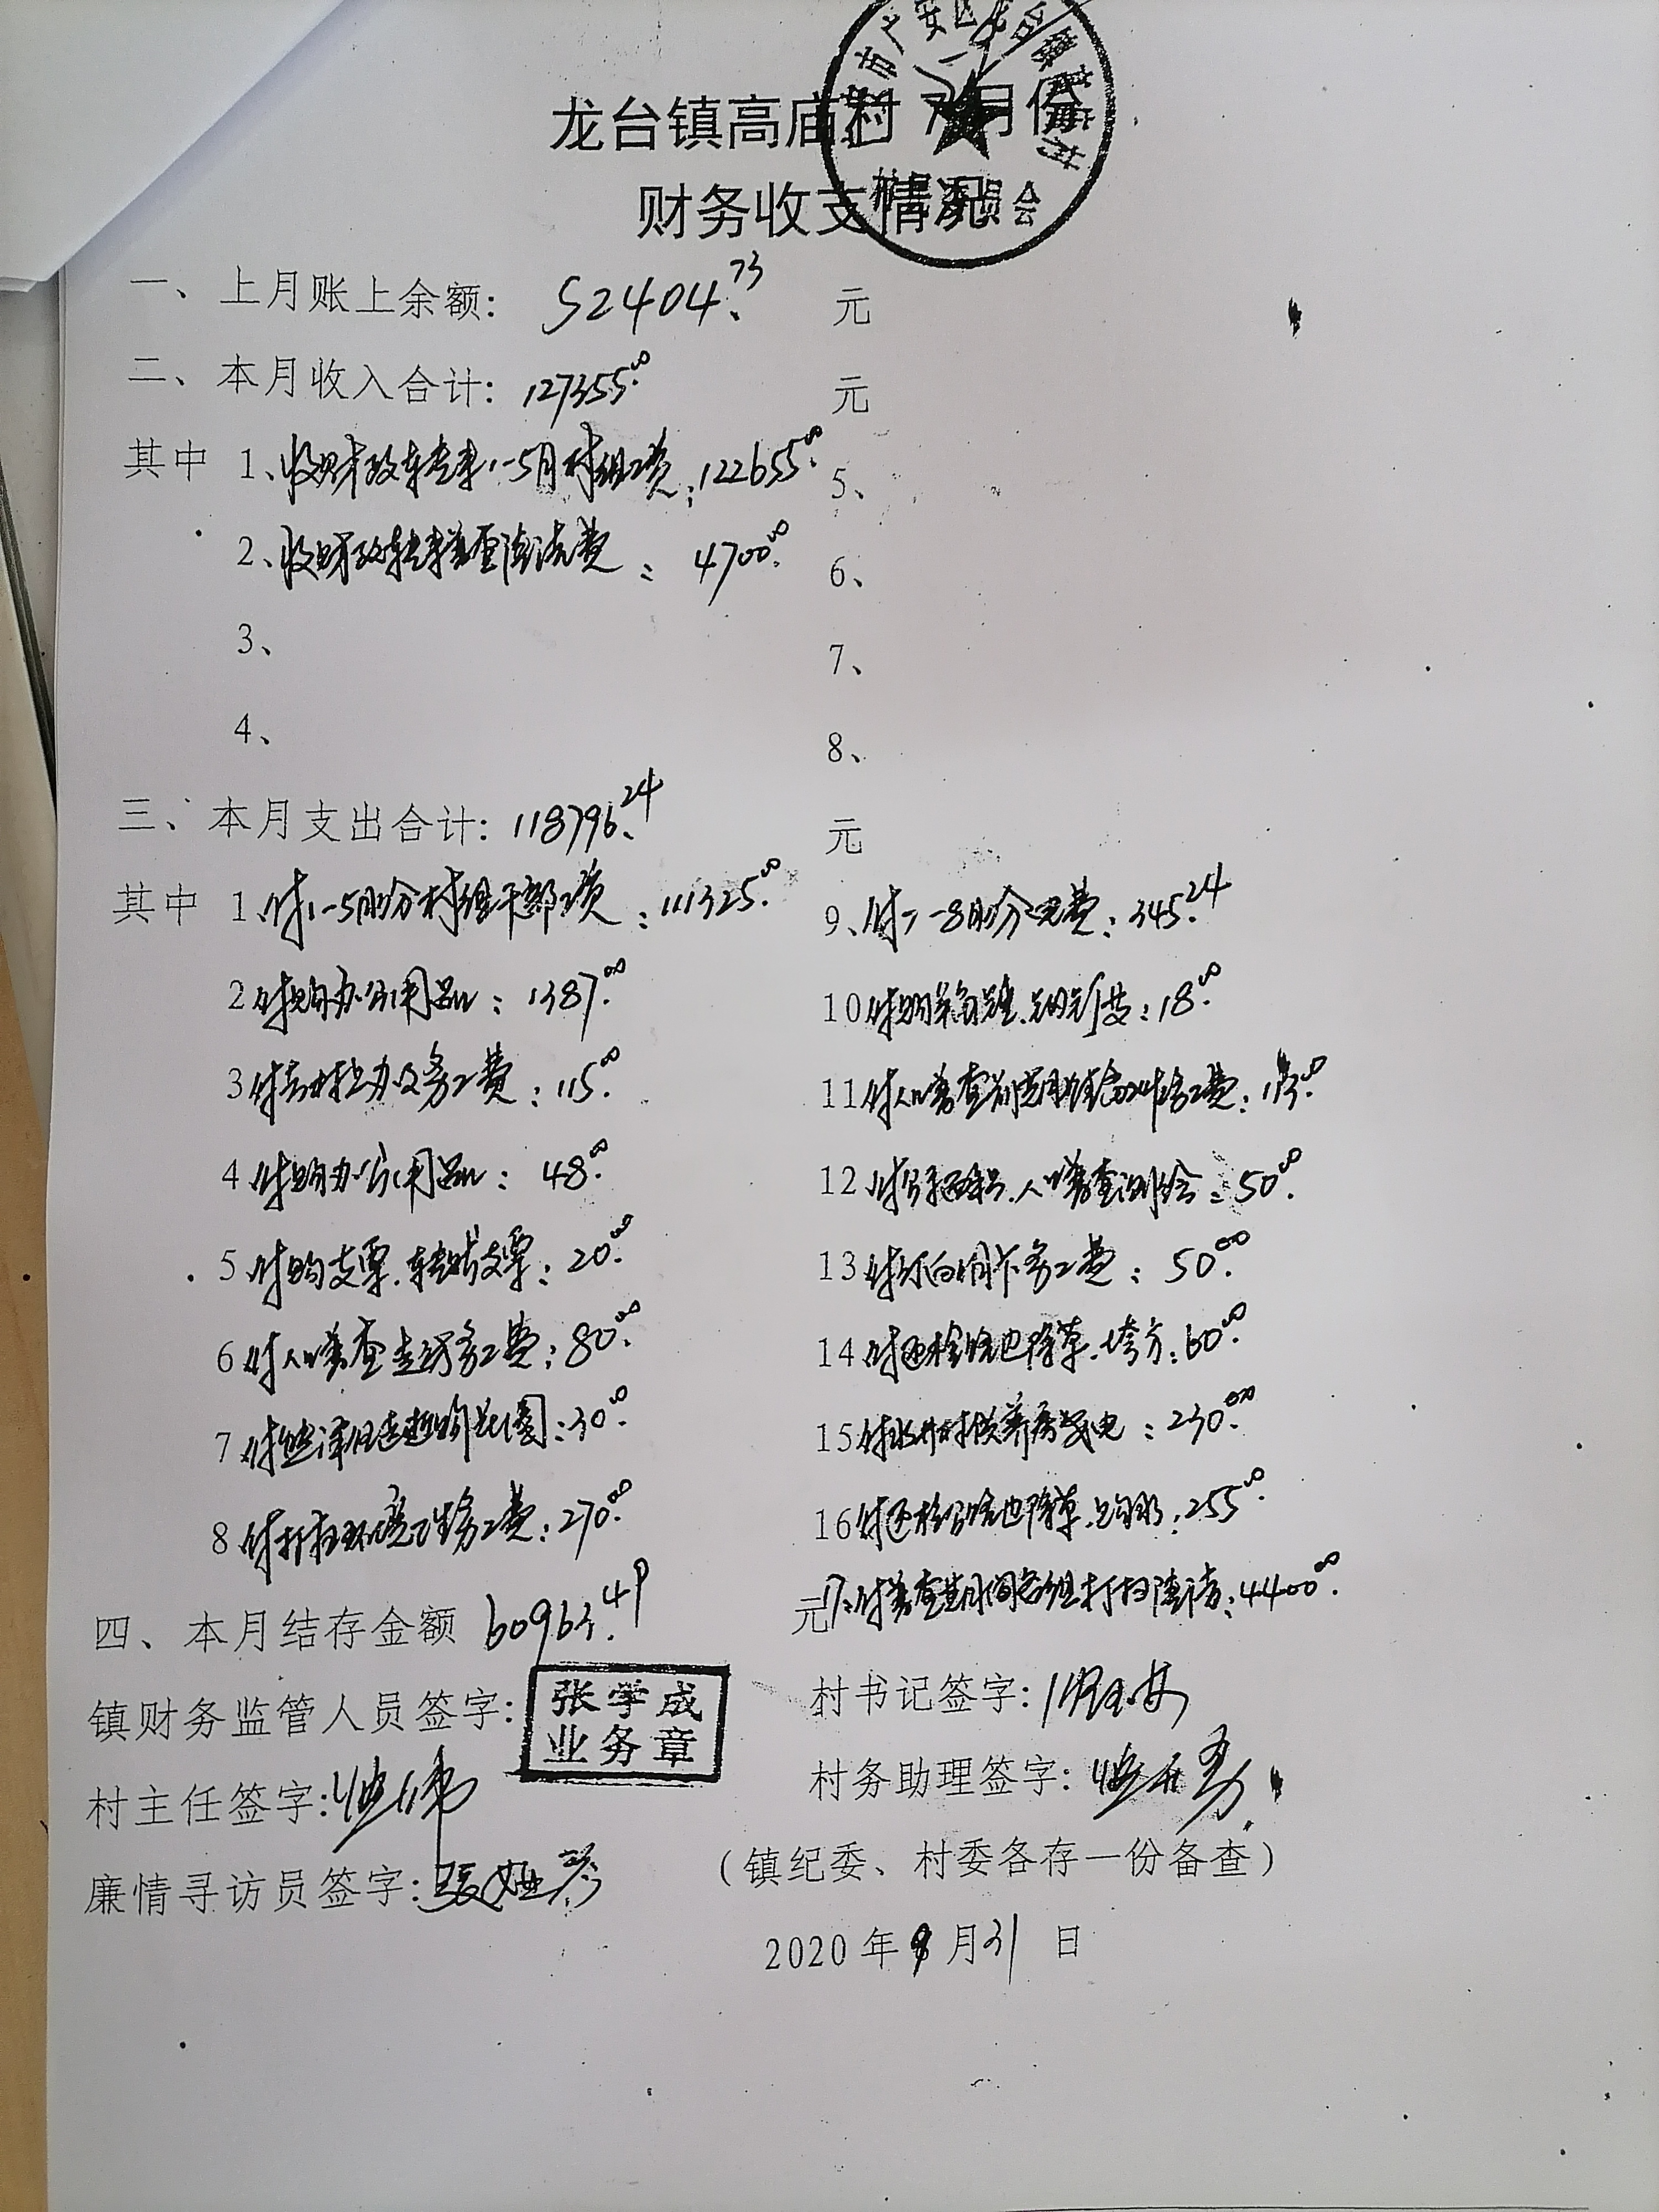 龙台镇高庙村 7-8月份
财务收支情况
村民委员会
一、上月账上余额: 52404.73 元
二、本月收入合计: 127355.00 元
其中 1、收财政转来1-5月村组工资: 122655.00 5、
2、收财政转来普查清洁费: 4700.00 6、
3、 7、
4、 8、
三、本月支出合计: 118796.24 元
其中 1、付1-5月份村组干部工资: 111325.00 9、付7-8月份电费: 345.24
2付购办公用品: 1387.00 10付购 18.00
3付 务工费: 115.00 11付人口普查 务工费: 113.00
4付购办公用品: 48.00 12付 人口普查 50.00
5付购支票、转账支票: 20.00 13付 务工费: 50.00
6付人口普查 务工费: 80.00 14付 除草、垮方: 60.00
7付 30.00 15付 230.00
8付打扫环境卫生务工费: 270.00 16付 除草、 255.00
四、本月结存金额 60963.49 元 17、付普查期间各组打扫清洁: 4400.00
镇财务监管人员签字: 张学成 业务章 村书记签字:
村主任签字: 村务助理签字:
廉情寻访员签字: （镇纪委、村委各存一份备查）
2020年8月31日